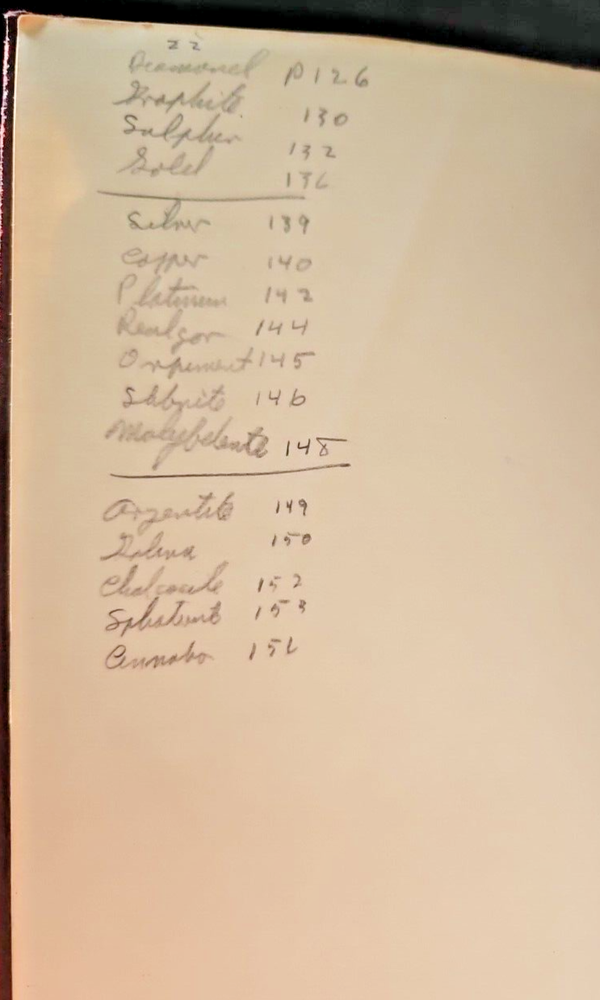 22
Diamond P126
Graphite 130
Sulphur 132
Gold 136
Silver 139
Copper 140
Platinum 142
Realgar 144
Orpiment 145
Stibnite 146
Molybdenite 148
Argentite 149
Galena 150
Chalcocite 152
Sphalerite 153
Cinnabar 156